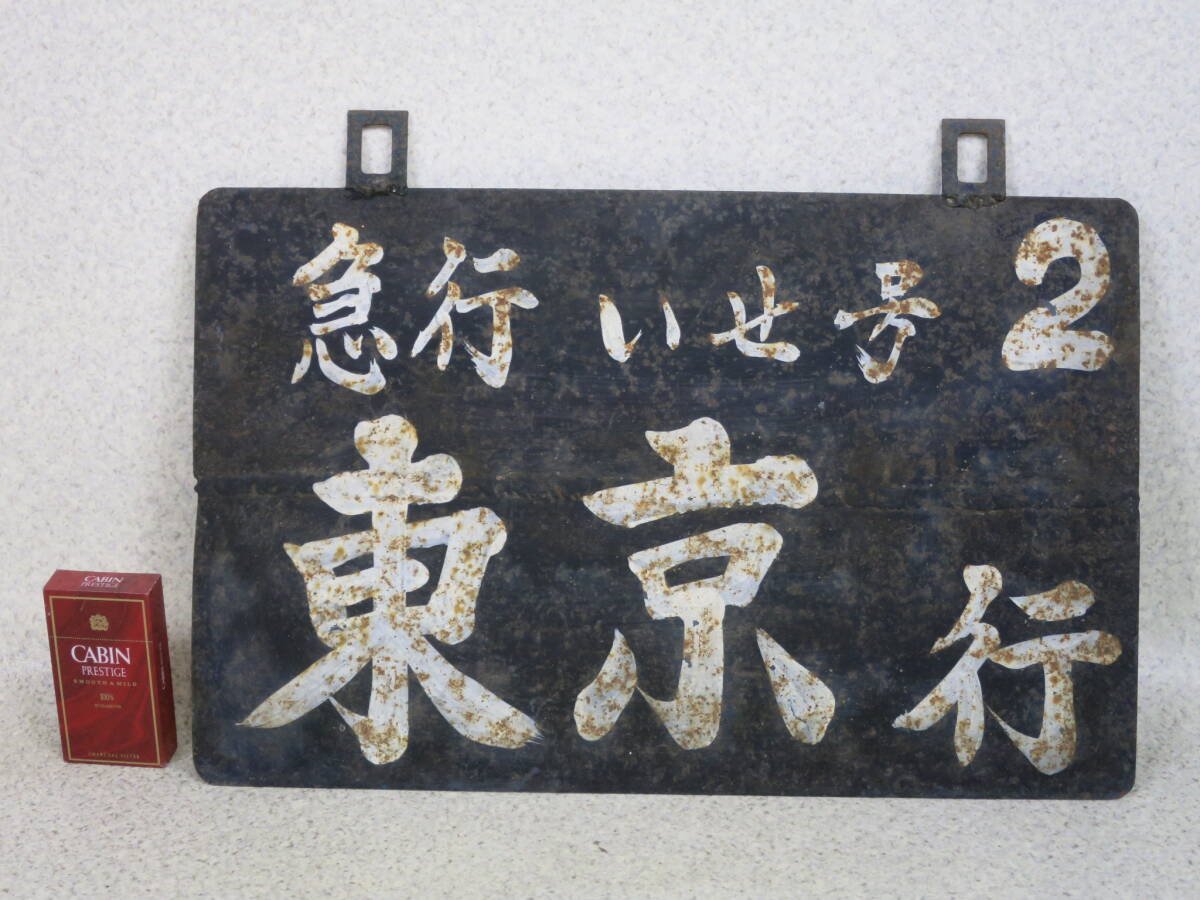 急行 いせ号 2
東京 行
CABIN
PRESTIGE
CABIN
PRESTIGE
SMOOTH & MILD
100's
CHARCOAL FILTER